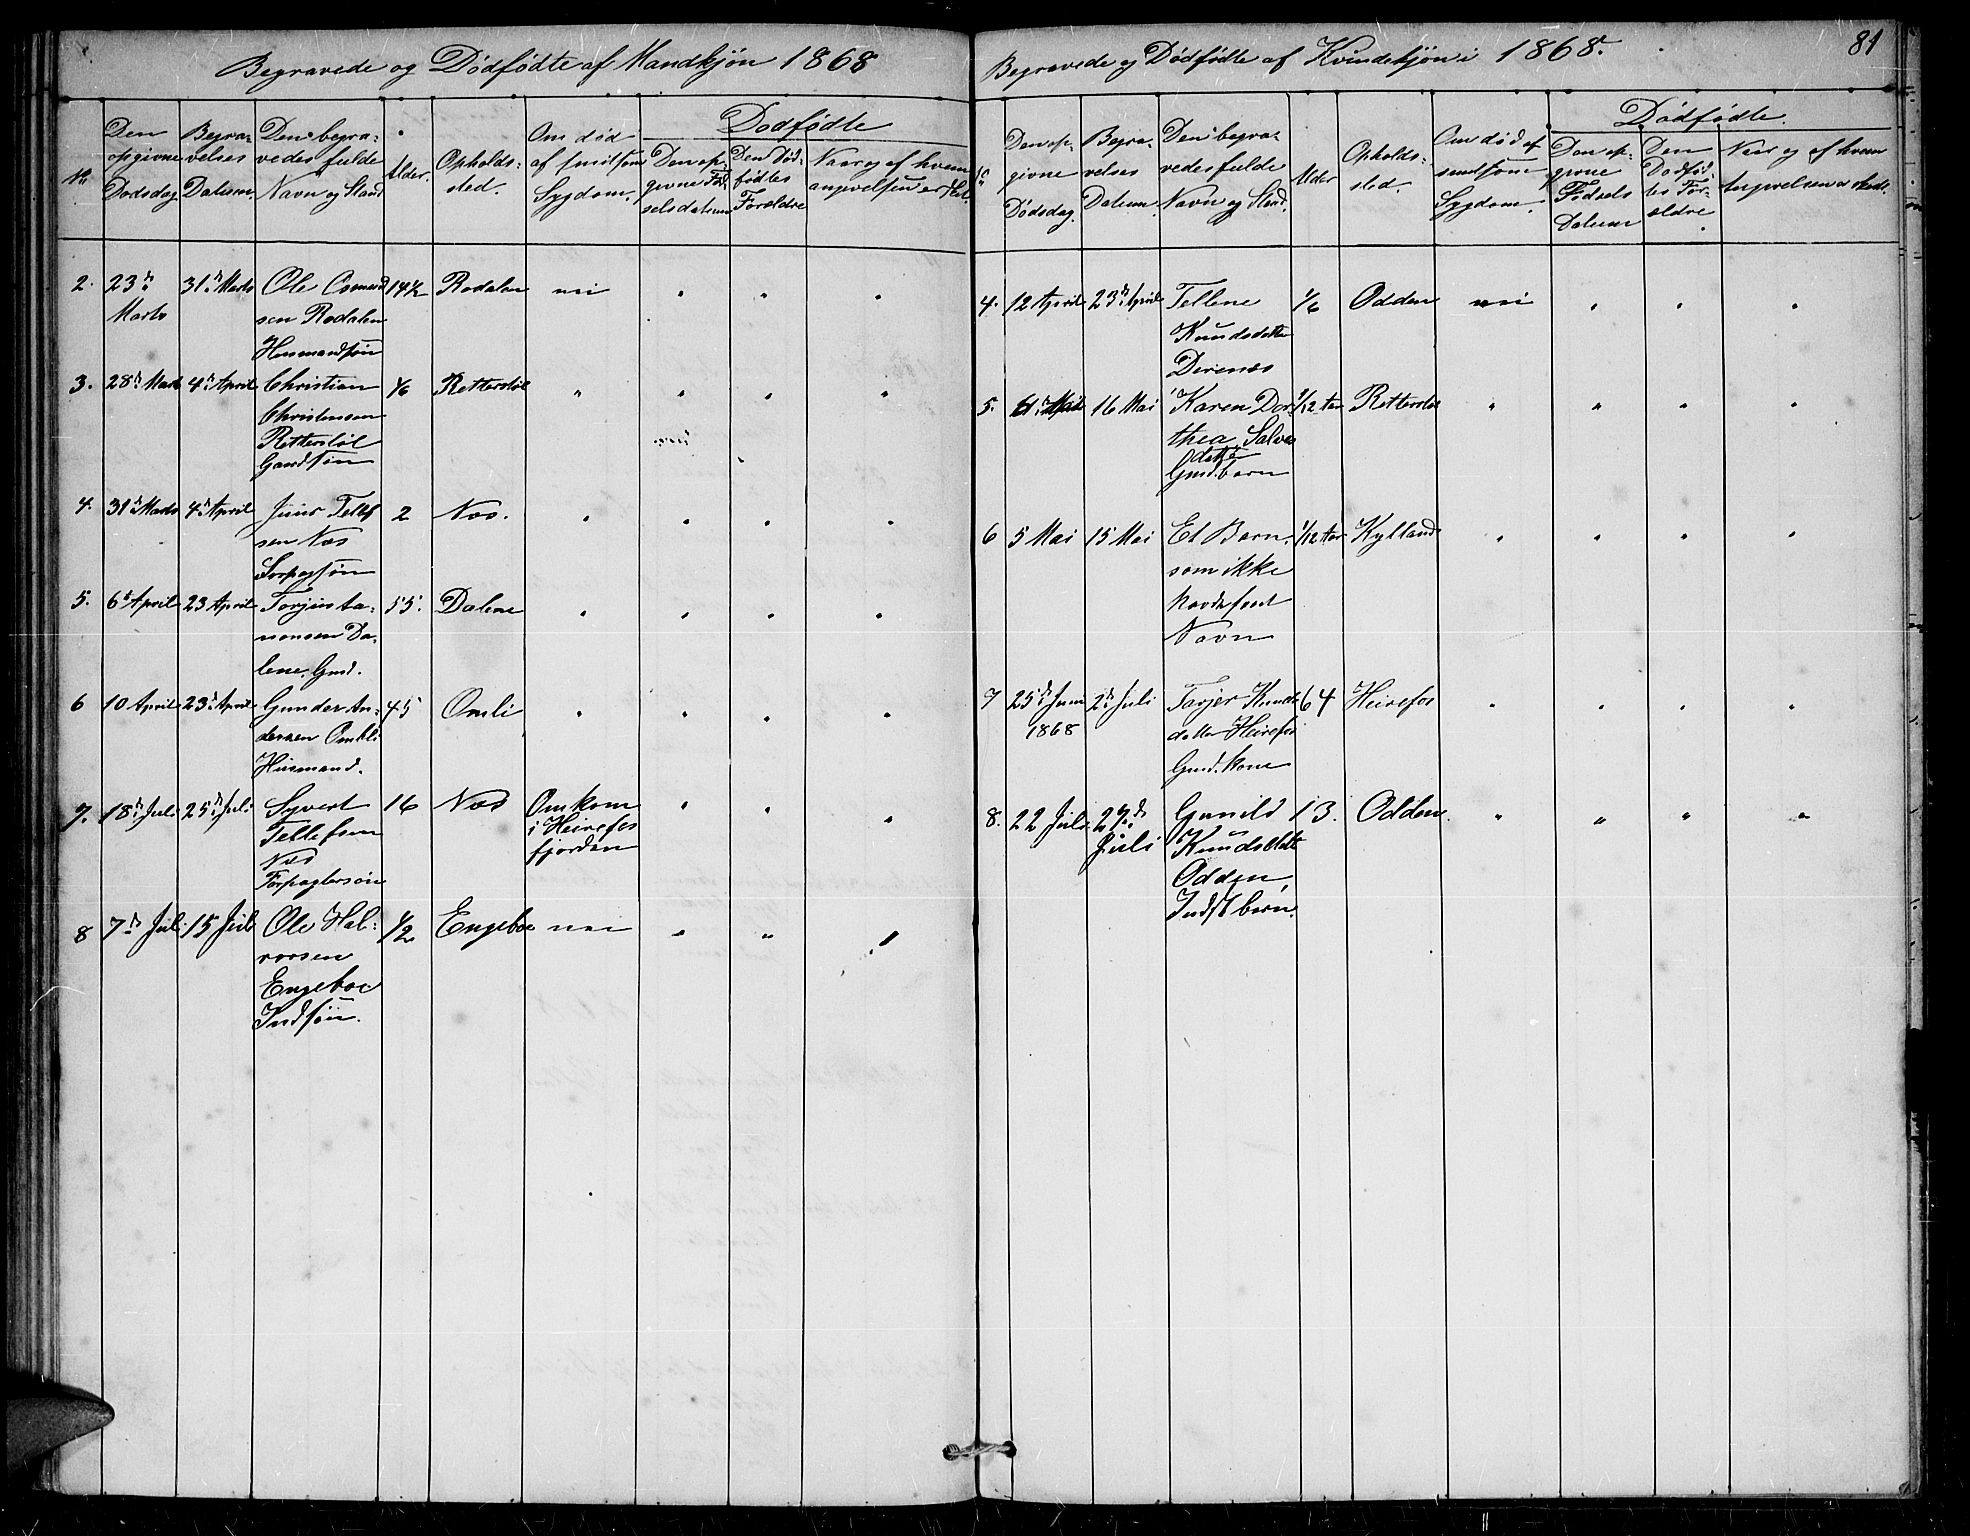 Begravede og Dödfödte af Mandkjön 1868
Dodfödte
No
Den opgivne Dodsdag.
Begravelses Datum.
Den begravedes fulde Navn og Stand
Alder.
Opholdssted.
Om död af smitsom Sygdom.
Den opgivne Födselsdatum
Den Dödfödtes Forældre
Naar og af hvem angivelsen er skeet
2. 23de Marts 31te Marts Ole Osmundsen Rodalen Husmandsön 14½ Rodalen nei " " "
3. 28de Marts 4de April Christian Christensen Rettersløl Gaardsøn 1/6 Rettersløl " " " "
4. 31te Marts 4de April Jens Tellefsen Næs 2 Næs. " " " "
5. 6te April 23 April Torjus Aanonsen Dalene Gmd. 55. Dalene " " " "
6 10 April 23de April Gunder Andersen Omli Husmand. 45 Omli " " " "
7. 18de Juli 25de Juli Syvert Tellefsen Næs Forpagtersön 16 Næs Omkom i Heirefosfjorden " " "
8 7de Juli 15 Juli Ole Halvorsen Engeboe Indsön. 1/2 Engeboe nei " " "
Begravede og Dödfödte af Kvindekjön i 1868.
81
Dödfödte.
No
Den opgivne Dödsdag.
Begravelses Datum.
Den begravedes fulde Navn og Stand.
Alder
Opholdssted.
Om död af smitsom Sygdom.
Den opgivne Födsels Datum
Den Dödfödtes Forældre.
Naar og af hvem Angivelsen er skeet.
4. 12 April 23de April Tellene Knudsdatter Direnes 1/6 Odden nei " " "
5. 16 Mai Karen Dorthea Salvesdatter Gmd. barn Rettersløl " " " "
6 5 Mai 15 Mai Et Barn, som ikke havde faaet Navn 1/12 Aar Kylland " " " "
7 25de Juni 1868 2de Juli Tarjer Knudsdatter Heirefos Gmd. kone 64 Heirefos " " " "
8. 22 Juli 27de Juli Gunild Knudsdatter Odden, Indst barn. 13. Odden. " " " "